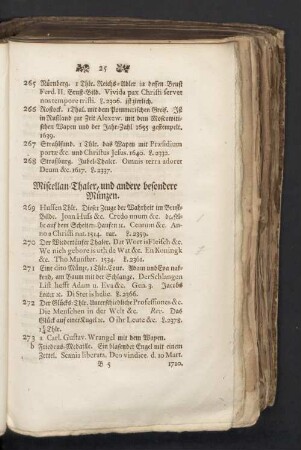 25
265 Nürnberg. 1 Thlr. Reichs-Adler in dessen Brust
Ferd. II. Brust-Bild. Vivida pax Christi servet
nos tempore tristi. L. 2306. ist zierlich.
266 Rostock. 1 Thal. mit dem Pommerischen Greif. Ist
in Rußland zur Zeit Alexow. mit dem Moscowiti-
schen Wapen und der Jahr-Zahl 1655 gestempelt.
1639.
267 Straßund. 1 Thlr. das Wapen mit Præsidium
portæ &c. und Christus Jesus. 1640. L. 2332.
268 Strasburg. Jubel-Thaler. Omnis terra adoret
Deum &c. 1617. L. 2337.
Miscellan Thaler, und andere besondere
Münzen.
269 Hussen Thlr. Dieser Zeuge der Wahrheit im Brust-
Bilde. Joan. Huss &c. Credo unum &c. derselbe
auf dem Scheiter-Haufen u. Centum &c. An-
no a Christi nat. 1514. rar. L. 2359.
270 Der Wiedertäufer Thaler. Dat Wort is Fleisch &c.
We nich gebore is uth de Wat &c. En Koningk
&c. Tho Munster. 1534. L. 2361.
271 Eine dito Münz. 1 Thlr. 1 qr. Adam und Eva na-
ckend, am Baum mit der Schlange. Der Schlangen
List. hefft Adam u. Eva &c. Gen. 3. Jacobs
Leiter u. Di Ster is helie. L. 2366.
272 Der Glücks-Thlr. Unterschiedliche Professiones &c.
Die Menschen in der Welt &c. Rev. Das
Glück auf einer Kugel &c. O ihr Leute &c. L. 2378.
1½ Thlr.
273 a Carl. Gustav. Wrangel mit dem Wapen.
b Friedens-Medaille. Ein blasender Engel mit einem
Zettel. Sexnia liberata. Den vindice. d. 10 Mart.
B 5 1710.